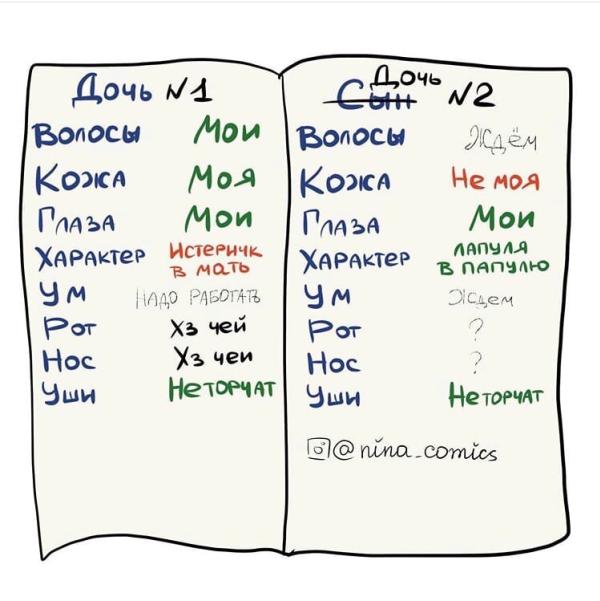 Дочь N1
Волосы Мои
Кожа Моя
Глаза Мои
Характер Истеричк
в мать
Ум Надо работать
Рот Хз чей
Нос Хз чеи
Уши Не торчат
Дочь
Сын N2
Волосы Ждём
Кожа Не моя
Глаза Мои
Характер лапуля
в папулю
Ум Ждем
Рот ?
Нос ?
Уши Не торчат
@nina_comics